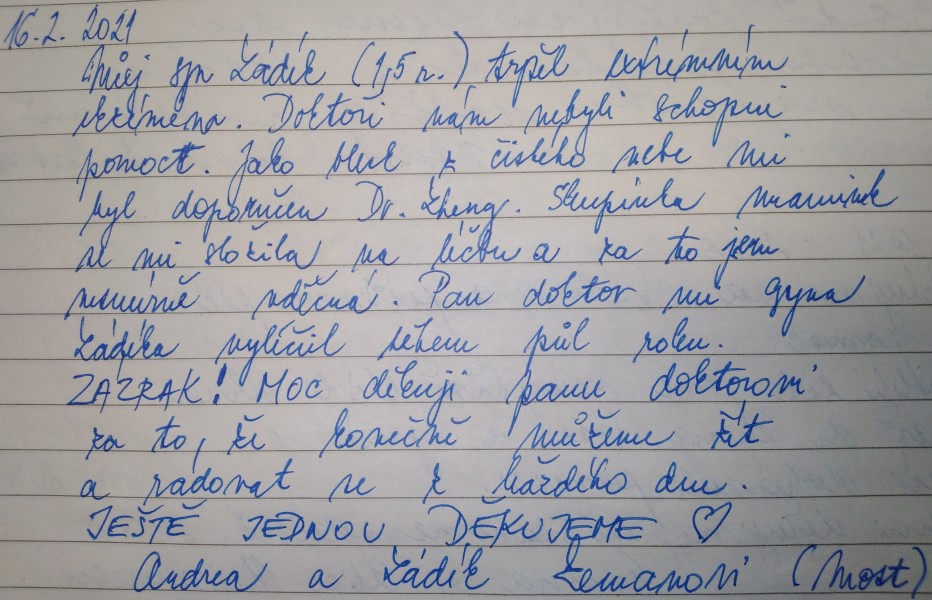 16.2. 2021
Můj syn Ládík (1,5 r.) trpěl extrémním
ekzémem. Doktoři nám nebyli schopni
pomoct. Jako blesk z čistého nebe mi
byl doporučen Dr. Zheng. Skupinka maminek
se mi složila na léčbu a za to jsem
nesmírně vděčná. Pan doktor mi syna
Ládíka vyléčil během půl roku.
ZÁZRAK! MOC děkuji panu doktorovi
za to, že konečně můžeme žít
a radovat se z každého dne.
JEŠTĚ JEDNOU DĚKUJEME ♡
Andrea a Ládík Zemanovi (Most)